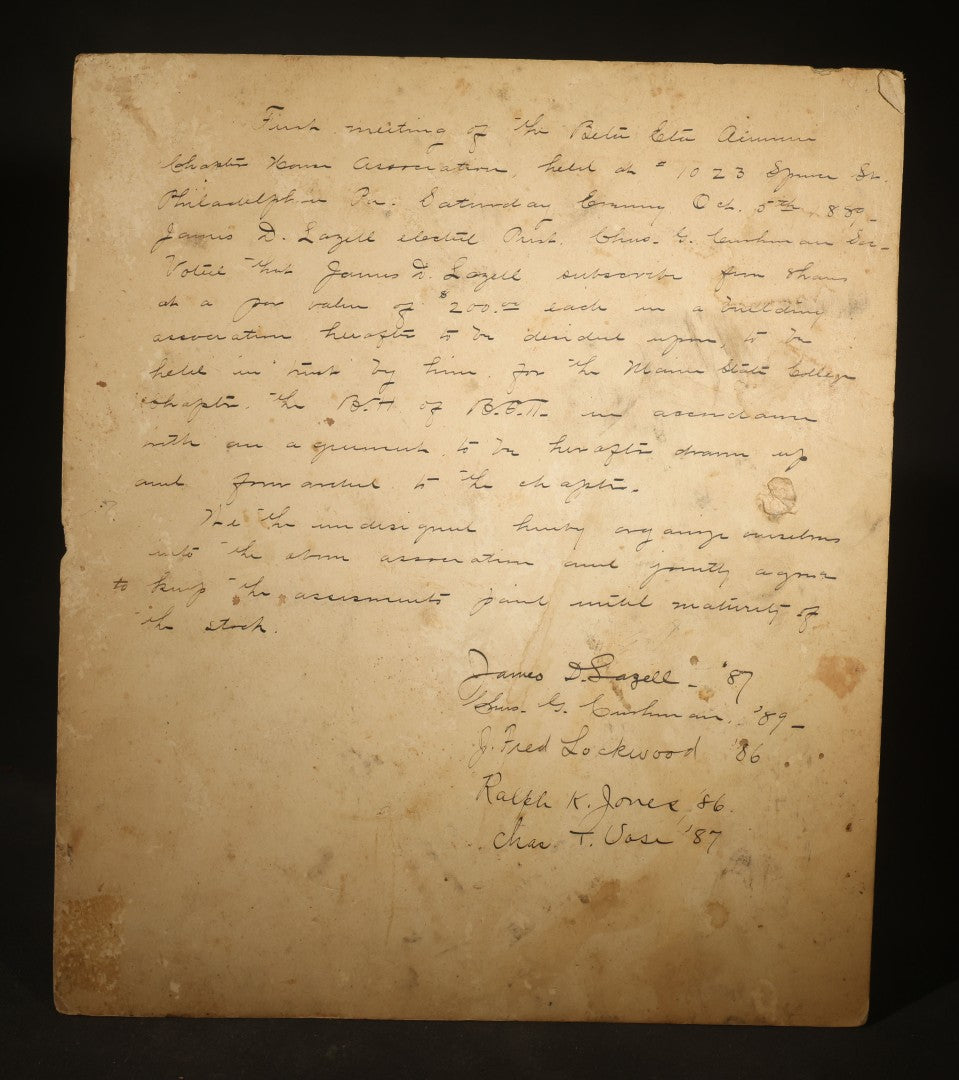 First meeting of the Beta Eta Alumni
Chapter House Association, held at # 1023 Spruce St.
Philadelphia Pa. Saturday Evening Oct. 5th
James D. Lazell elected Prest. Chas. G. Cushman Sec-
Voted that James D. Lazell subscribe five shares
at a par value of $200.00 each in a building
association hereafter to be decided upon, to be
held in trust by him, for the Maine State College
chapter, the B.H of B.θ.π. in accordance
with an agreement to be hereafter drawn up
and forwarded to the chapter.
We the undersigned hereby organize ourselves
into the above association and jointly agree
to keep the assessments paid until maturity of
the stock.
James D. Lazell - '87
Chas. G. Cushman, '89-
J. Fred Lockwood '86
Ralph K. Jones, '86.
Chas. T. Vose '87